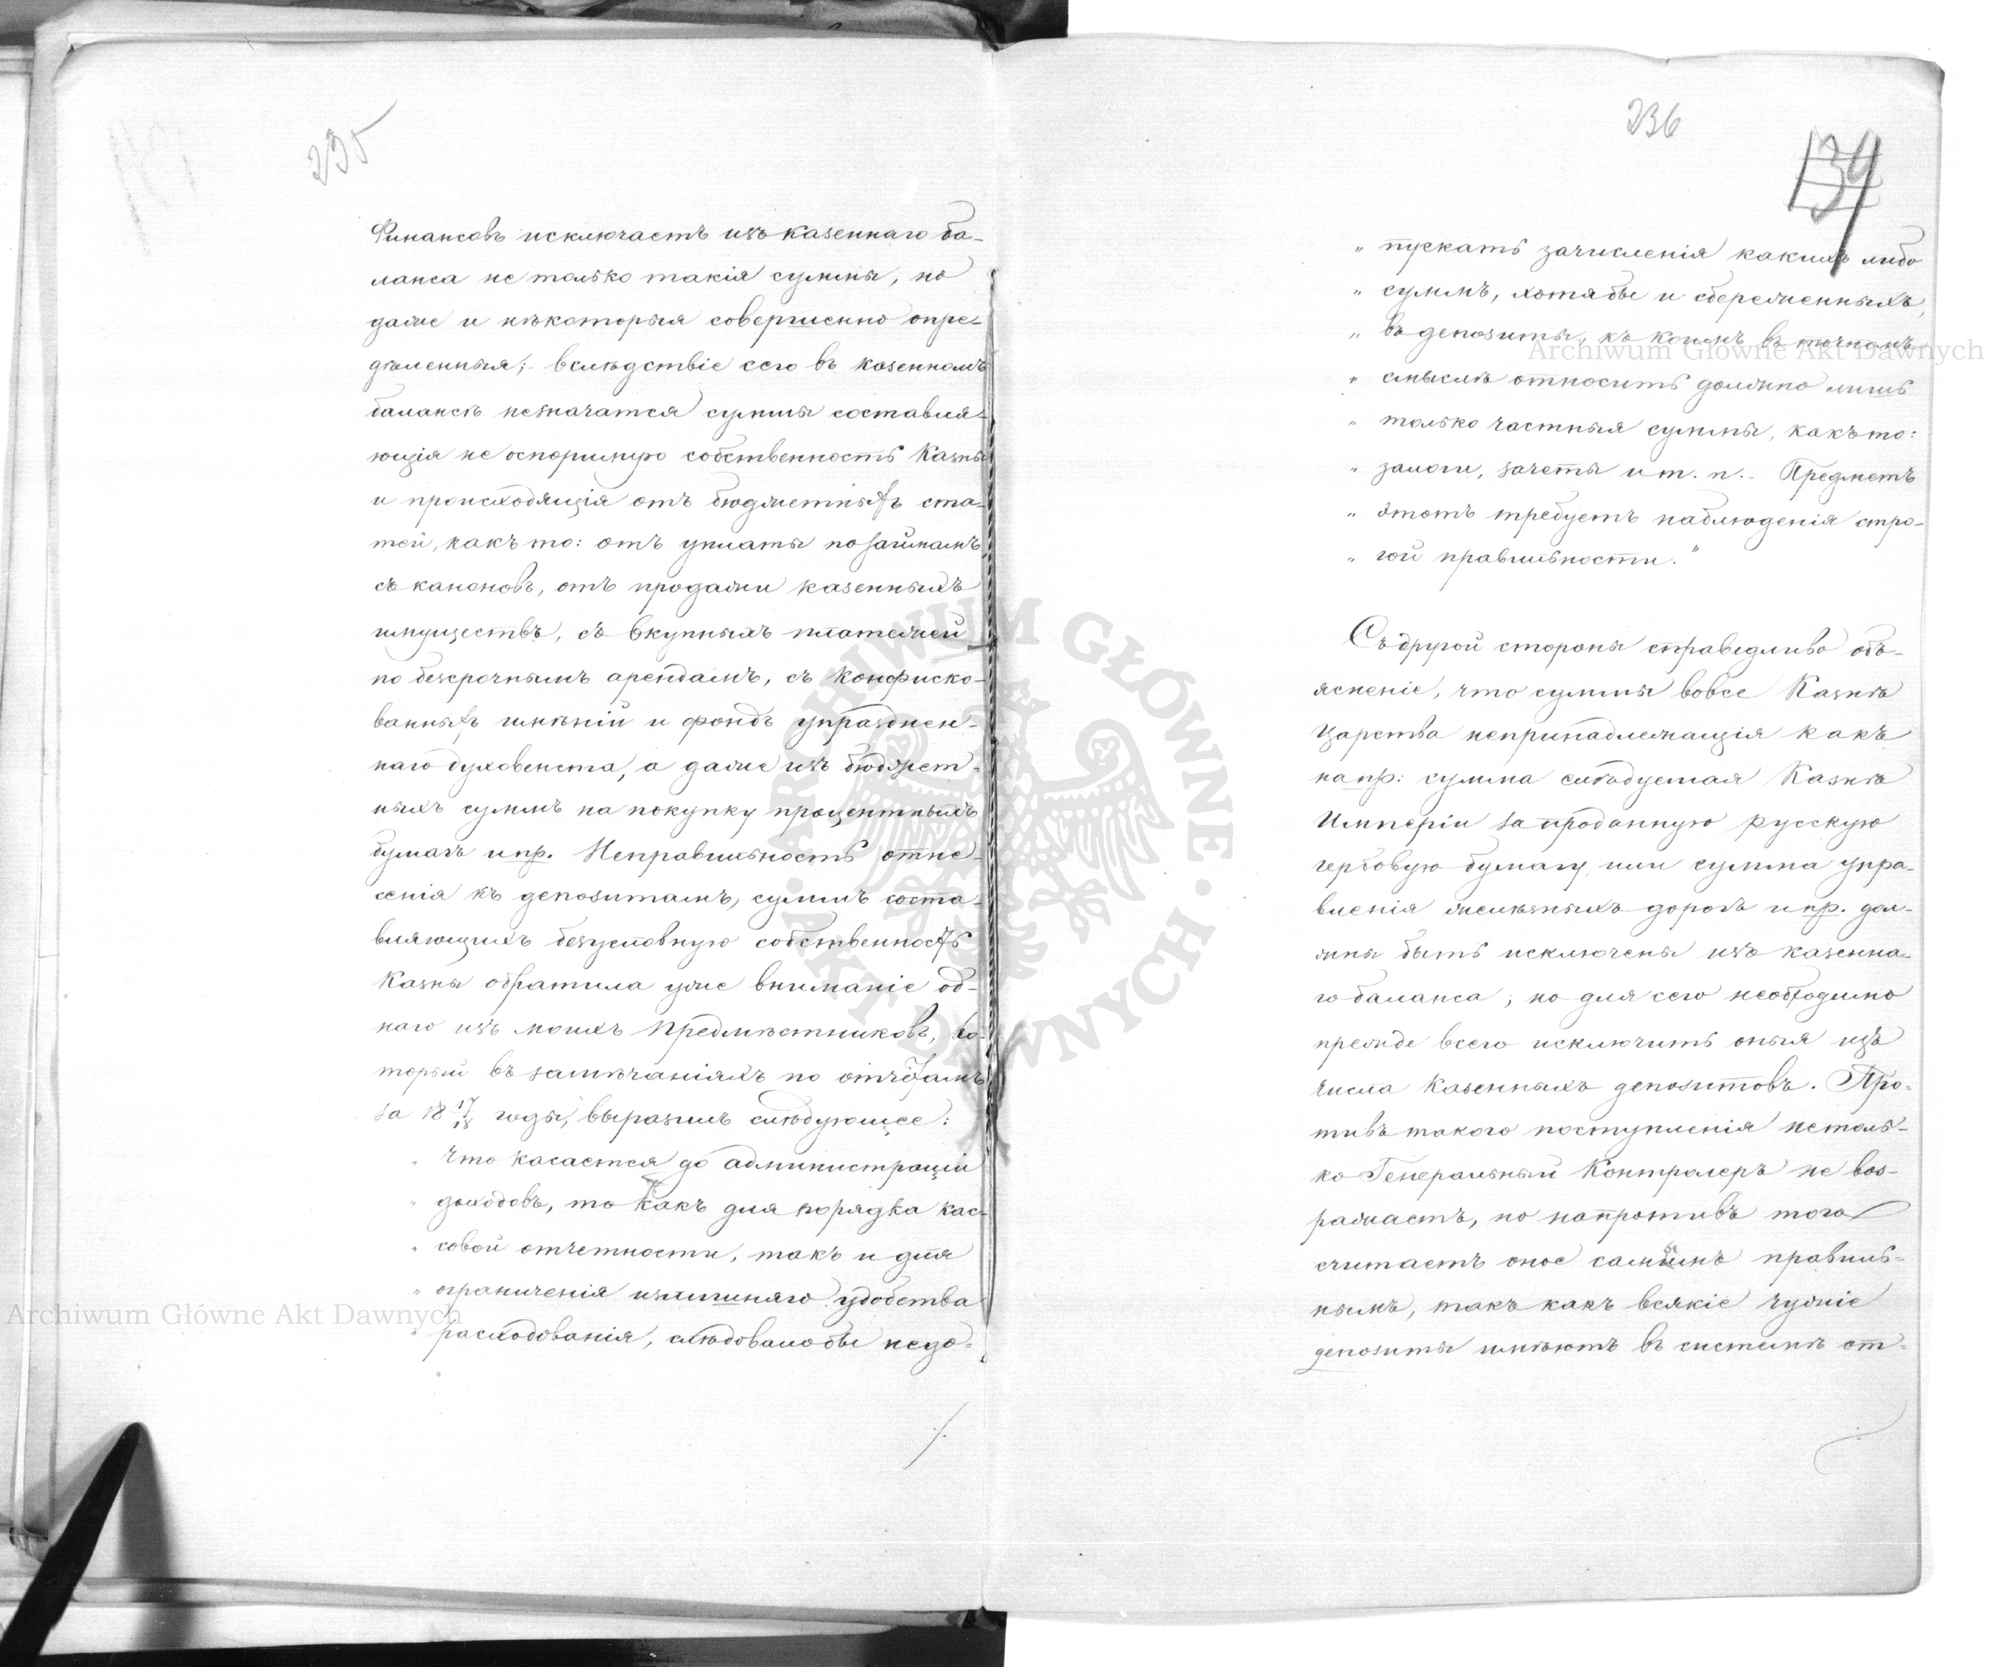 235
Финансовъ исключаетъ изъ казеннаго ба-
ланса не только такія суммы, но
даже и нѣкоторыя совершенно опре-
дѣленныя; вслѣдствіе сего въ казенномъ
балансѣ незначатся суммы составля-
ющія не оспоримую собственность Казны
и происходящія отъ бюджетныхъ ста-
тей, какъ то: отъ уплаты по займамъ
съ каноновъ, отъ продажи казенныхъ
имуществъ, съ вкупныхъ платежей
по безсрочнымъ арендамъ, съ конфиско-
ванныхъ имѣній и фондъ упразднен-
наго духовенста, а даже изъ бюджет-
ныхъ суммъ на покупку процентныхъ
бумагъ и пр. Неправильность отне-
сенія къ депозитамъ, суммъ соста-
вляющихъ безусловную собственность
Казны обратила уже вниманіе од-
наго изъ моихъ предмѣстниковъ, ко-
торый въ замѣчаніяхъ по отчётамъ
за 18 17/18 годы, выразилъ слѣдующее:
„ Что касается до администраціи
„ доходовъ, то какъ для порядка кас-
„ совой отчетности, такъ и для
„ ограниченія излишняго удобства
„ расходованія, слѣдовало бы недо-
./.
236
139
„ пускать зачисленія какихъ либо
„ суммъ, хотя бы и сбереженныхъ,
„ въ депозиты, къ коимъ въ точномъ
„ смыслѣ относить должно лишь
„ только частныя суммы, какъ то:
„ залоги, зачеты и т. п. – Предметъ
„ этотъ требуетъ наблюденія стро-
„ гой правильности."
Съ другой стороны справедливо объ-
ясненіе, что суммы вовсе Казнѣ
Царства непринадлежащія какъ
напр: сумма слѣдуемая Казнѣ
Имперіи за проданную русскую
гербовую бумагу, или сумма упра-
вленія желѣзныхъ дорогъ и пр. дол-
жны быть исключены изъ казенна-
го баланса; но для сего необходимо
прежде всего исключить оныя изъ
числа казенныхъ депозитовъ. Про-
тивъ такого поступленія нетоль-
ко Генеральный Контролеръ не воз-
ражаетъ, но напротивъ того
считаетъ оное самымъ правиль-
нымъ, такъ какъ всякіе чужіе
депозиты имѣютъ въ системѣ от-
Archiwum Główne Akt Dawnych
Archiwum Główne Akt Dawnych
ARCHIWUM GŁÓWNE · AKT DAWNYCH ·